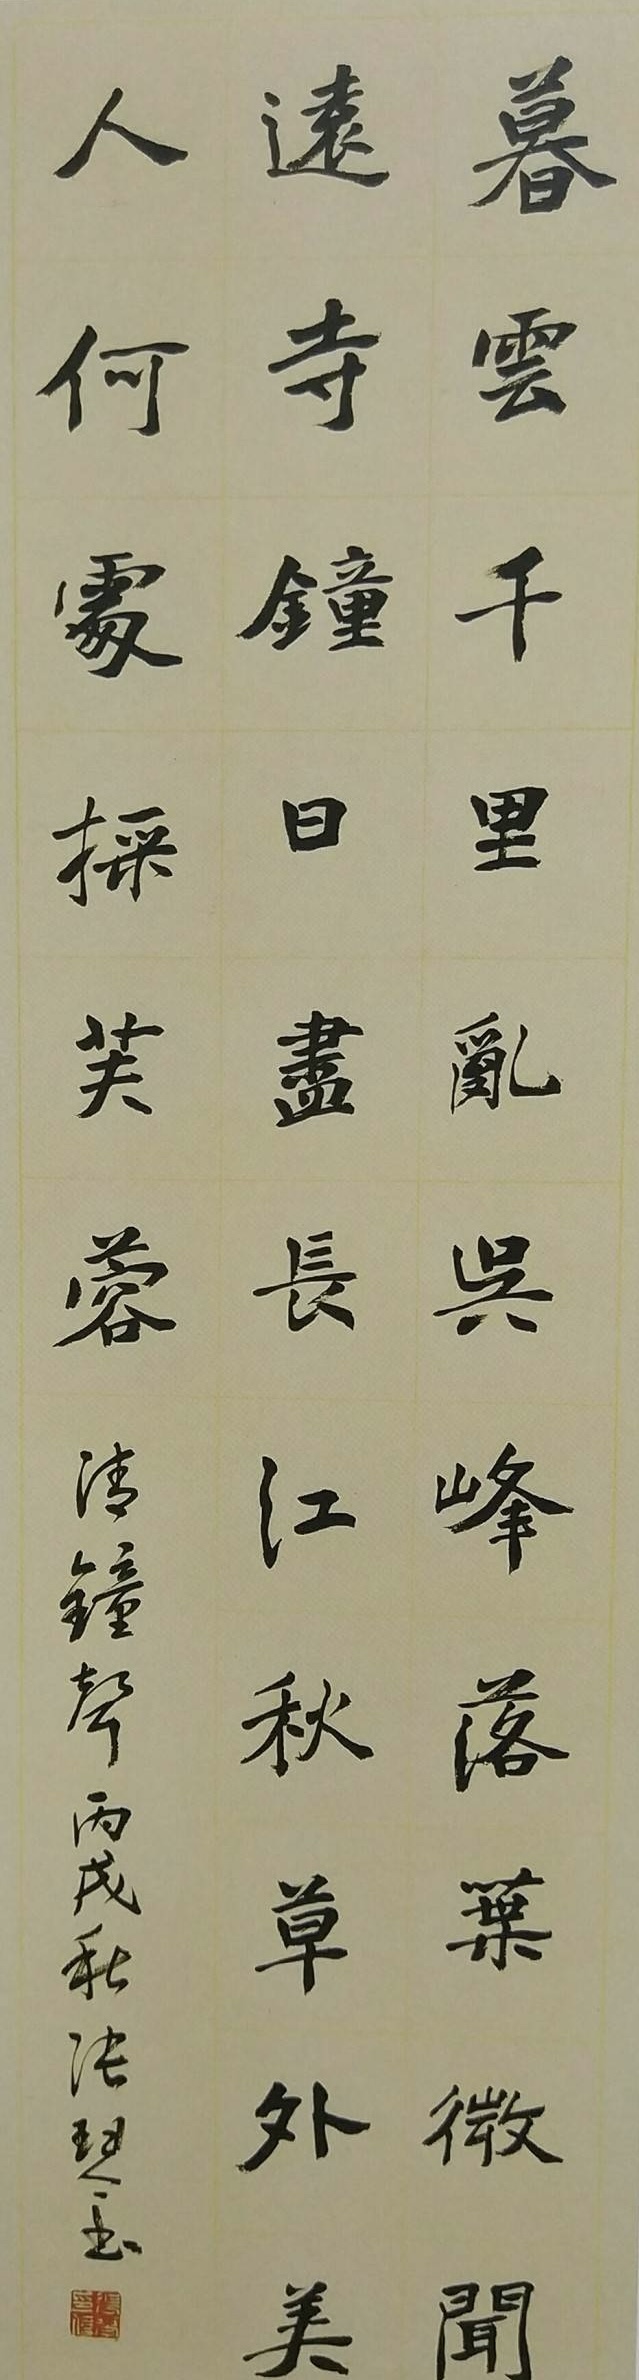 暮雲千里亂吳峰落葉微聞
遠寺鐘日盡長江秋草外美
人何處採芙蓉清鐘聲丙戌秋張